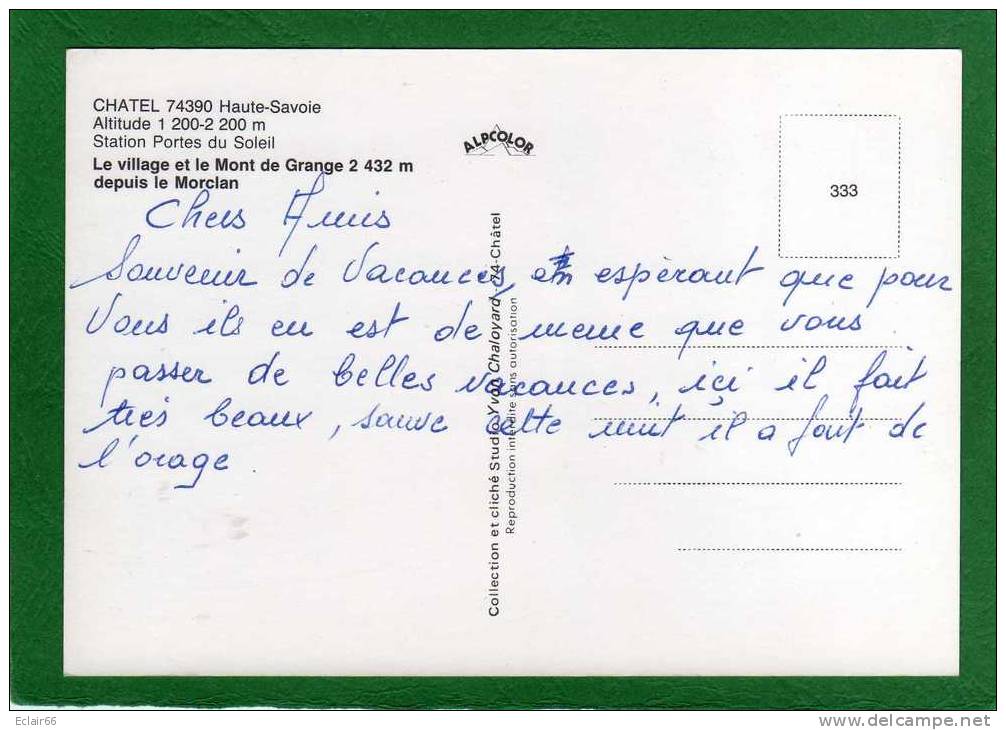 CHATEL 74390 Haute-Savoie
Altitude 1 200-2 200 m
Station Portes du Soleil
Le village et le Mont de Grange 2 432 m
depuis le Morclan
ALPCOLOR
333
Chers Amis
Souvenir de Vacances, en espèrant que pour
Vous ils en est de meme que vous
passer de belles vacances, ici il fait
très beaux, sauve cette nuit il a fait de
l'orage.
Collection et cliché Studio Yvon Chaloyard 74-Châtel
Reproduction interdite sans autorisation
Eclair66
delcampe.net